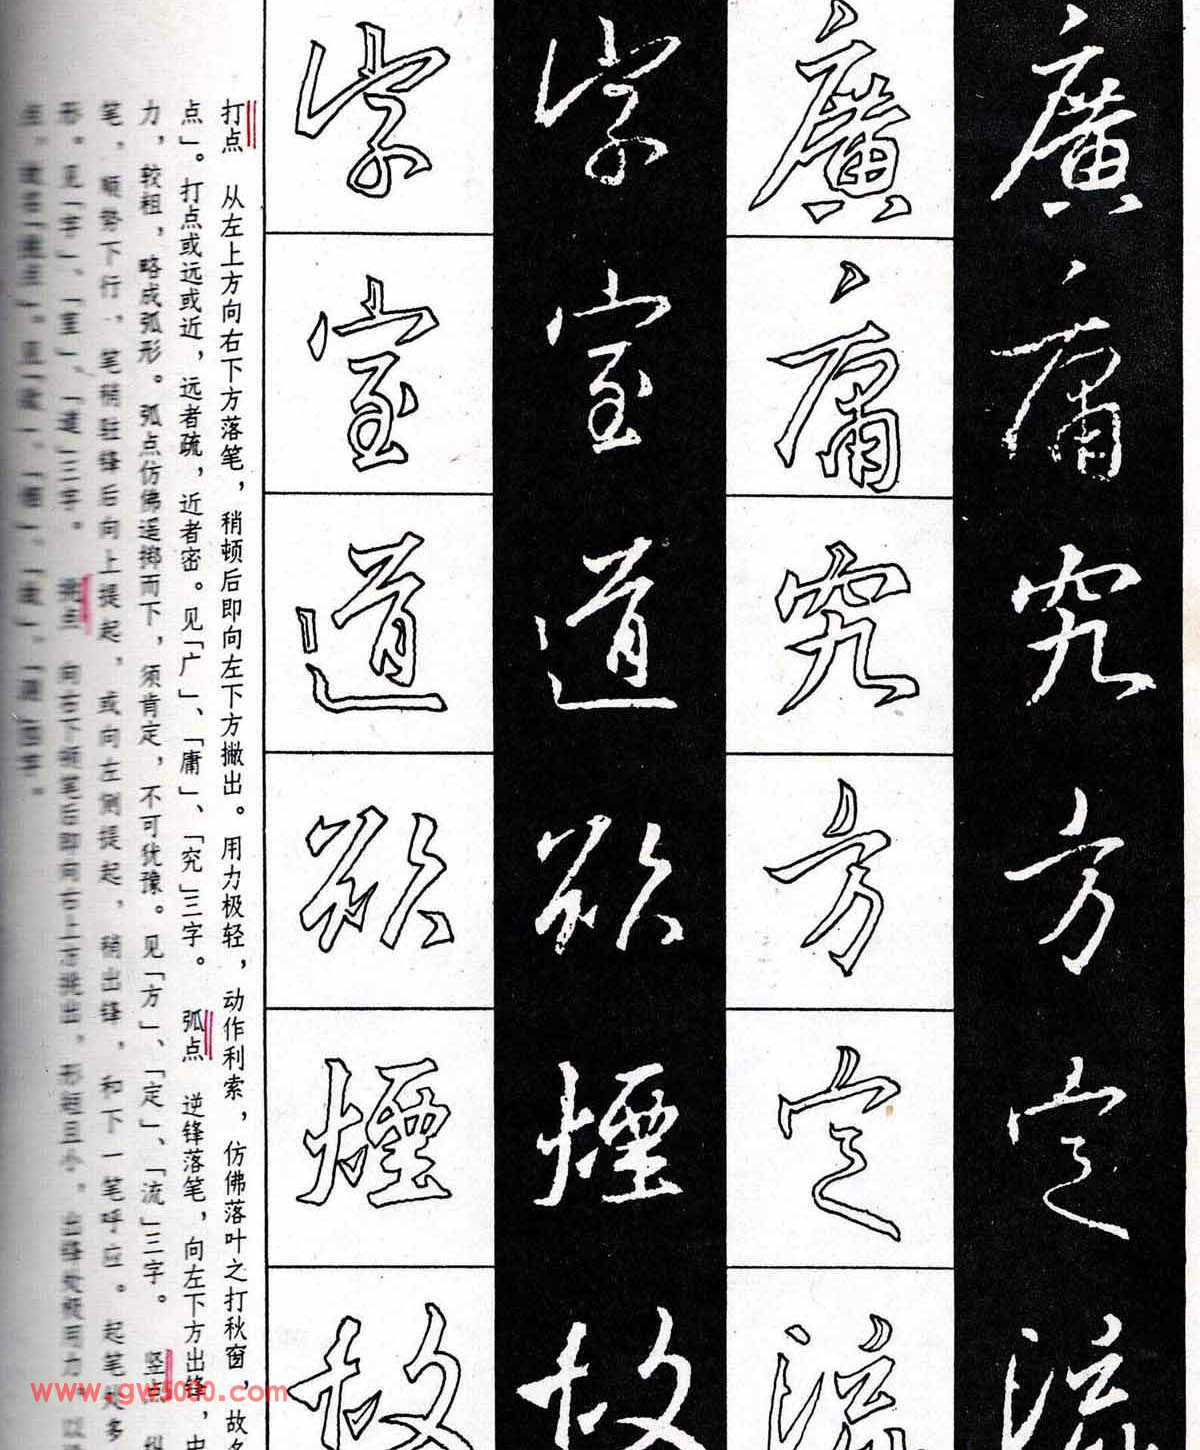 廣庸究方定流
廣庸究方定流
字室道欲煙故
字室道欲煙故
打点　从左上方向右下方落笔，稍顿后即向左下方撇出。用力极轻，动作利索，仿佛落叶之打秋窗，故名
点」。打点或远或近，远者疏，近者密。见「广」、「庸」、「究」三字。　弧点　逆锋落笔，向左下方出锋，
力，较粗，略成弧形。弧点仿佛遥掷而下，须肯定，不可犹豫。见「方」、「定」、「流」三字。　竖点
笔，顺势下行，笔稍驻锋后向上提起，或向左侧提起，稍出锋，和下一笔呼应。起笔处多
形。见「字」、「室」、「道」三字。　挑点　向右下顿笔后即向右上方挑出，形短且小。出锋处极用力。以
点，故名「挑点」。见「欲」、四字。
www.gw5000.com